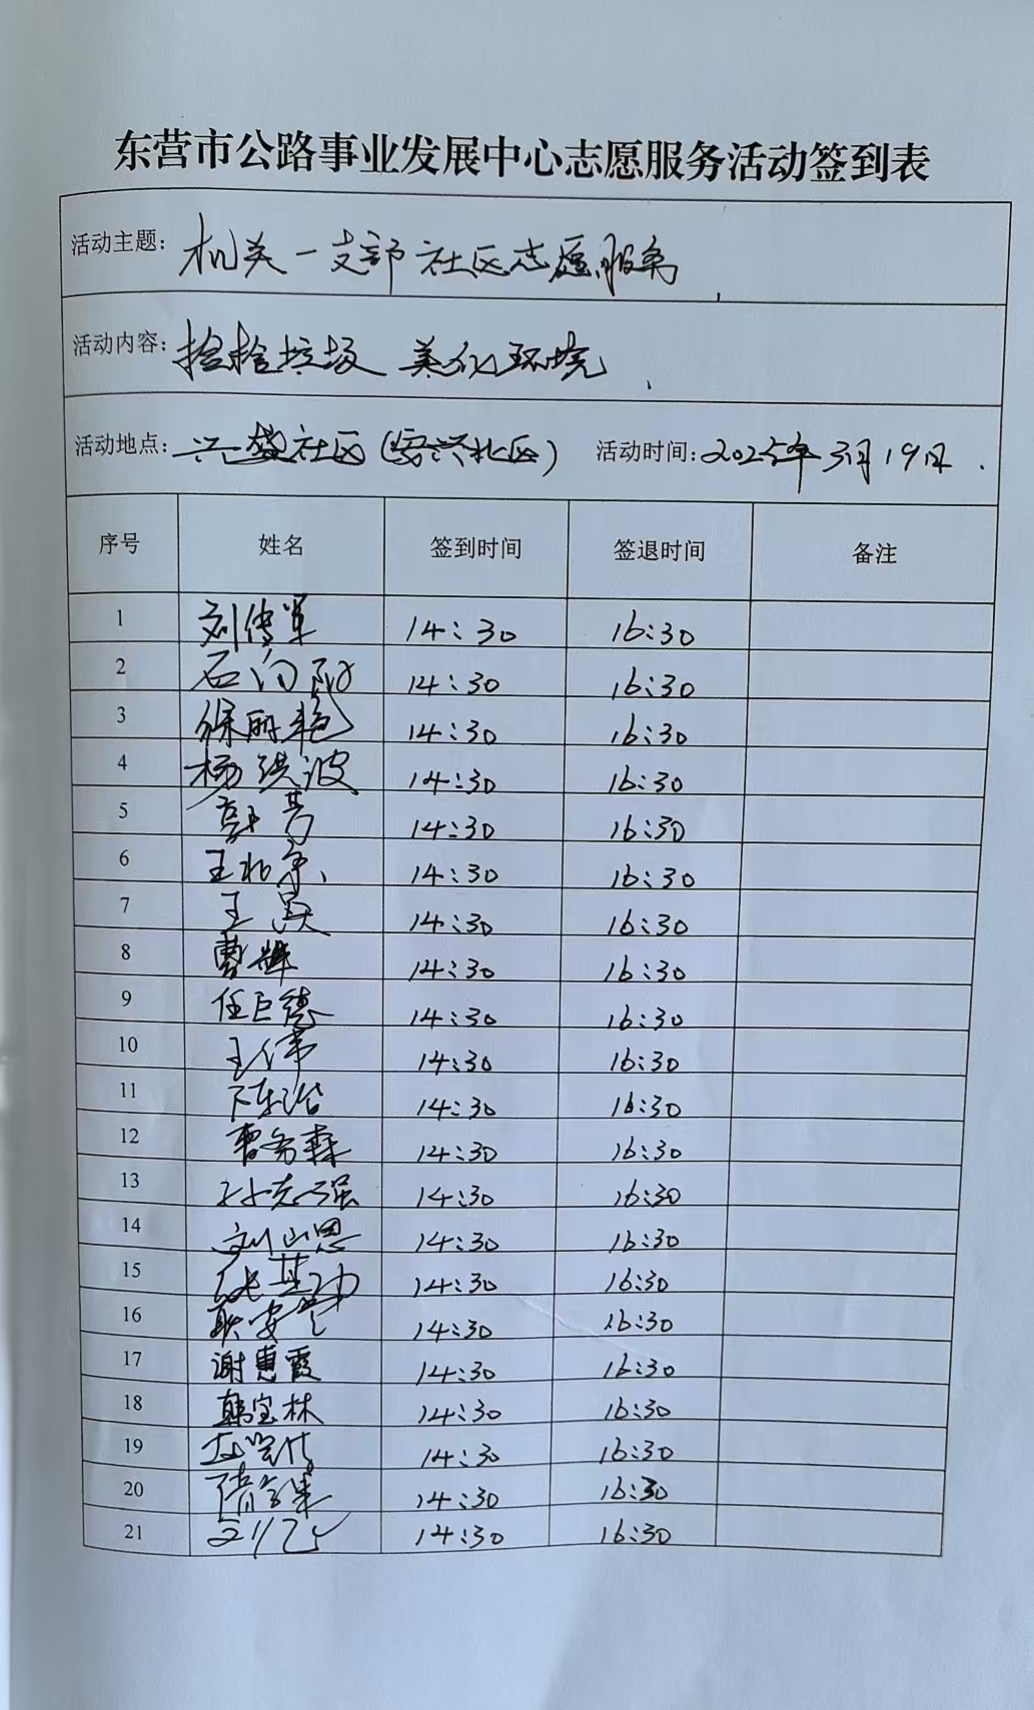 东营市公路事业发展中心志愿服务活动签到表
活动主题: 机关一支部社区志愿服务
活动内容: 捡捡垃圾 美化环境
活动地点: 兴盛社区(安兴北区) 活动时间: 2025年3月19日.
序号 姓名 签到时间 签退时间 备注
1 刘传军 14:30 16:30
2 石向阳 14:30 16:30
3 徐丽艳 14:30 16:30
4 杨洪波 14:30 16:30
5 14:30 16:30
6 王北京 14:30 16:30
7 王昊 14:30 16:30
8 曹辉 14:30 16:30
9 任巨德 14:30 16:30
10 王伟 14:30 16:30
11 14:30 16:30
12 14:30 16:30
13 孙志强 14:30 16:30
14 刘山恩 14:30 16:30
15 14:30 16:30
16 14:30 16:30
17 谢惠霞 14:30 16:30
18 韩宝林 14:30 16:30
19 14:30 16:30
20 14:30 16:30
21 14:30 16:30